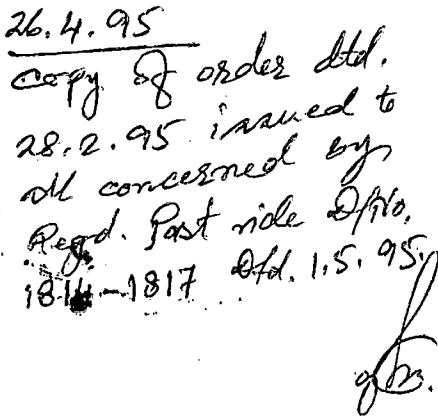 26.4.95
Copy of order dtd.
28.2.95 issued to
all concerned by
Regd. Post vide D/No.
1814-1817 Dtd. 1.5.95.